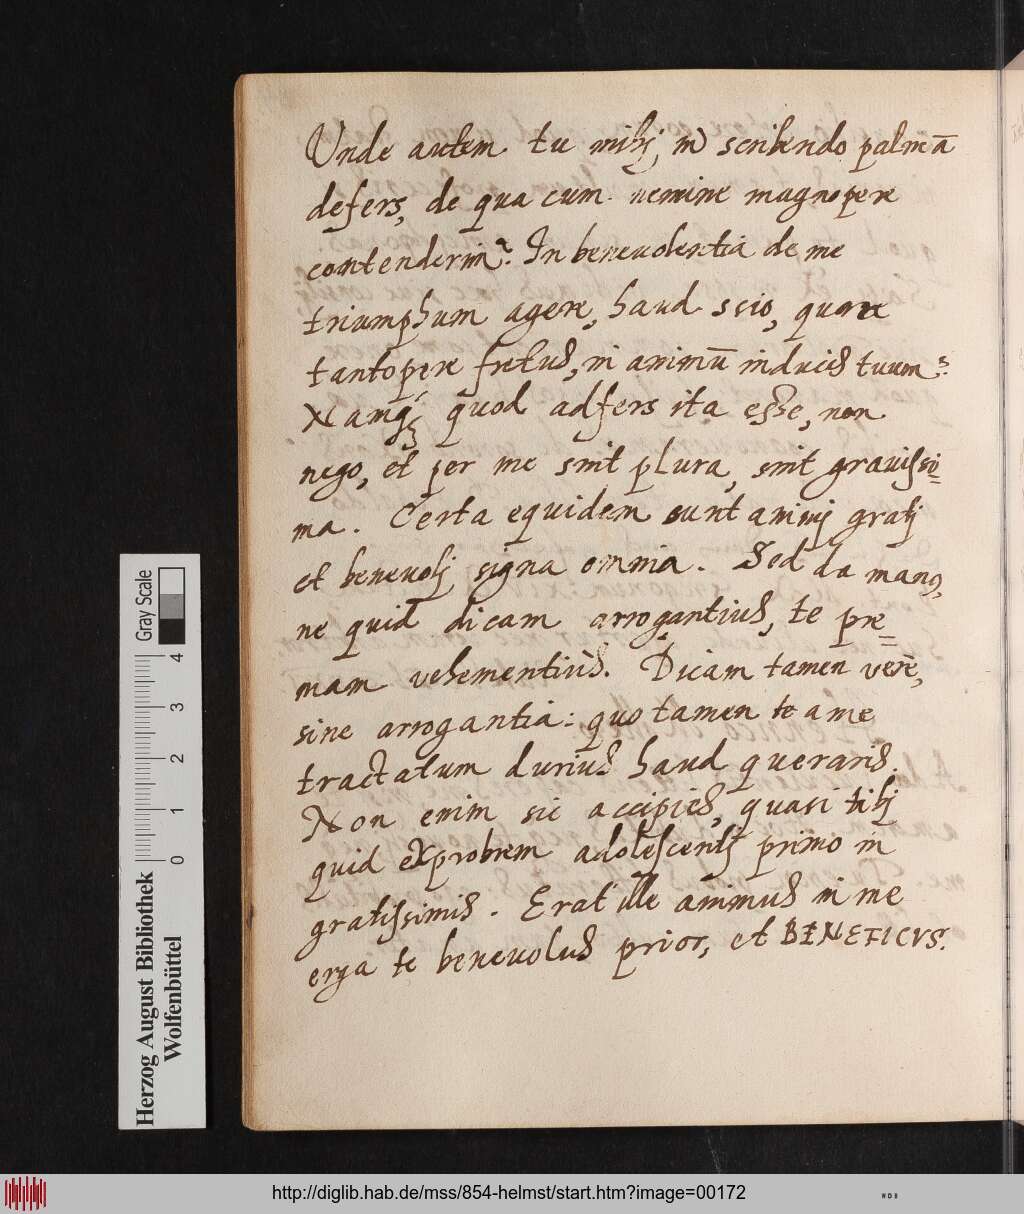 Unde autem tu mihj in scribendo palmã
defers, de qua cum nemine magnopere
contenderim? In beneuolentia de me
triumphum agere, haud scio, quare
tantopere fretus, in animũ inducis tuum?
Namq; quod adfers ita esse, non
nego, et per me sint plura, sint grauissi=
ma. Certa equidem sunt animj gratj
et beneuolj signa omnia. Sed da manq,
ne quid dicam arrogantius, te pre=
mam vehementiùs. Dicam tamen verè,
sine arrogantia: quo tamen te a me
tractatum durius haud queraris.
Non enim sic accipies, quasi tibj
quid exprobrem adolescentj primo in
gratissimis. Erat ille animus in me
erga te beneuolus prior, et BENEFICVS.
Herzog August Bibliothek
Wolfenbüttel
Gray Scale
0 1 2 3 4
http://diglib.hab.de/mss/854-helmst/start.htm?image=00172